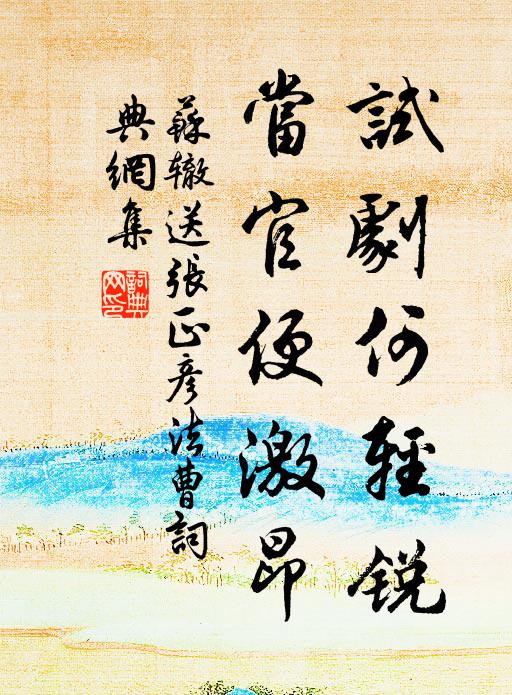 試劇何輕銳
當官便激昂
蘇轍送張正彥法曹詞
典網集
詞典網印